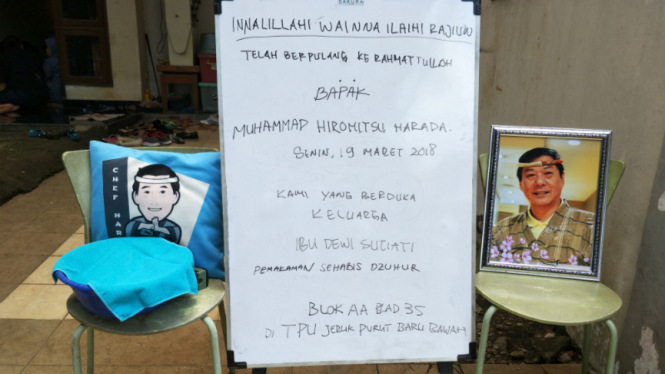 SAKURA
INNALILLAHI WAINNA ILAIHI RAJIUN
TELAH BERPULANG KE RAHMATTULLAH
BAPAK
MUHAMMAD HIROMITSU HARADA.
SENIN, 19 MARET 2018
KAMI YANG BERDUKA
KELUARGA
IBU DEWI SUCIATI
PEMAKAMAN SEHABIS DZUHUR
BLOK AA BAD 35
DI TPU JERUK PURUT BARU BAWAH
CHEF HAR